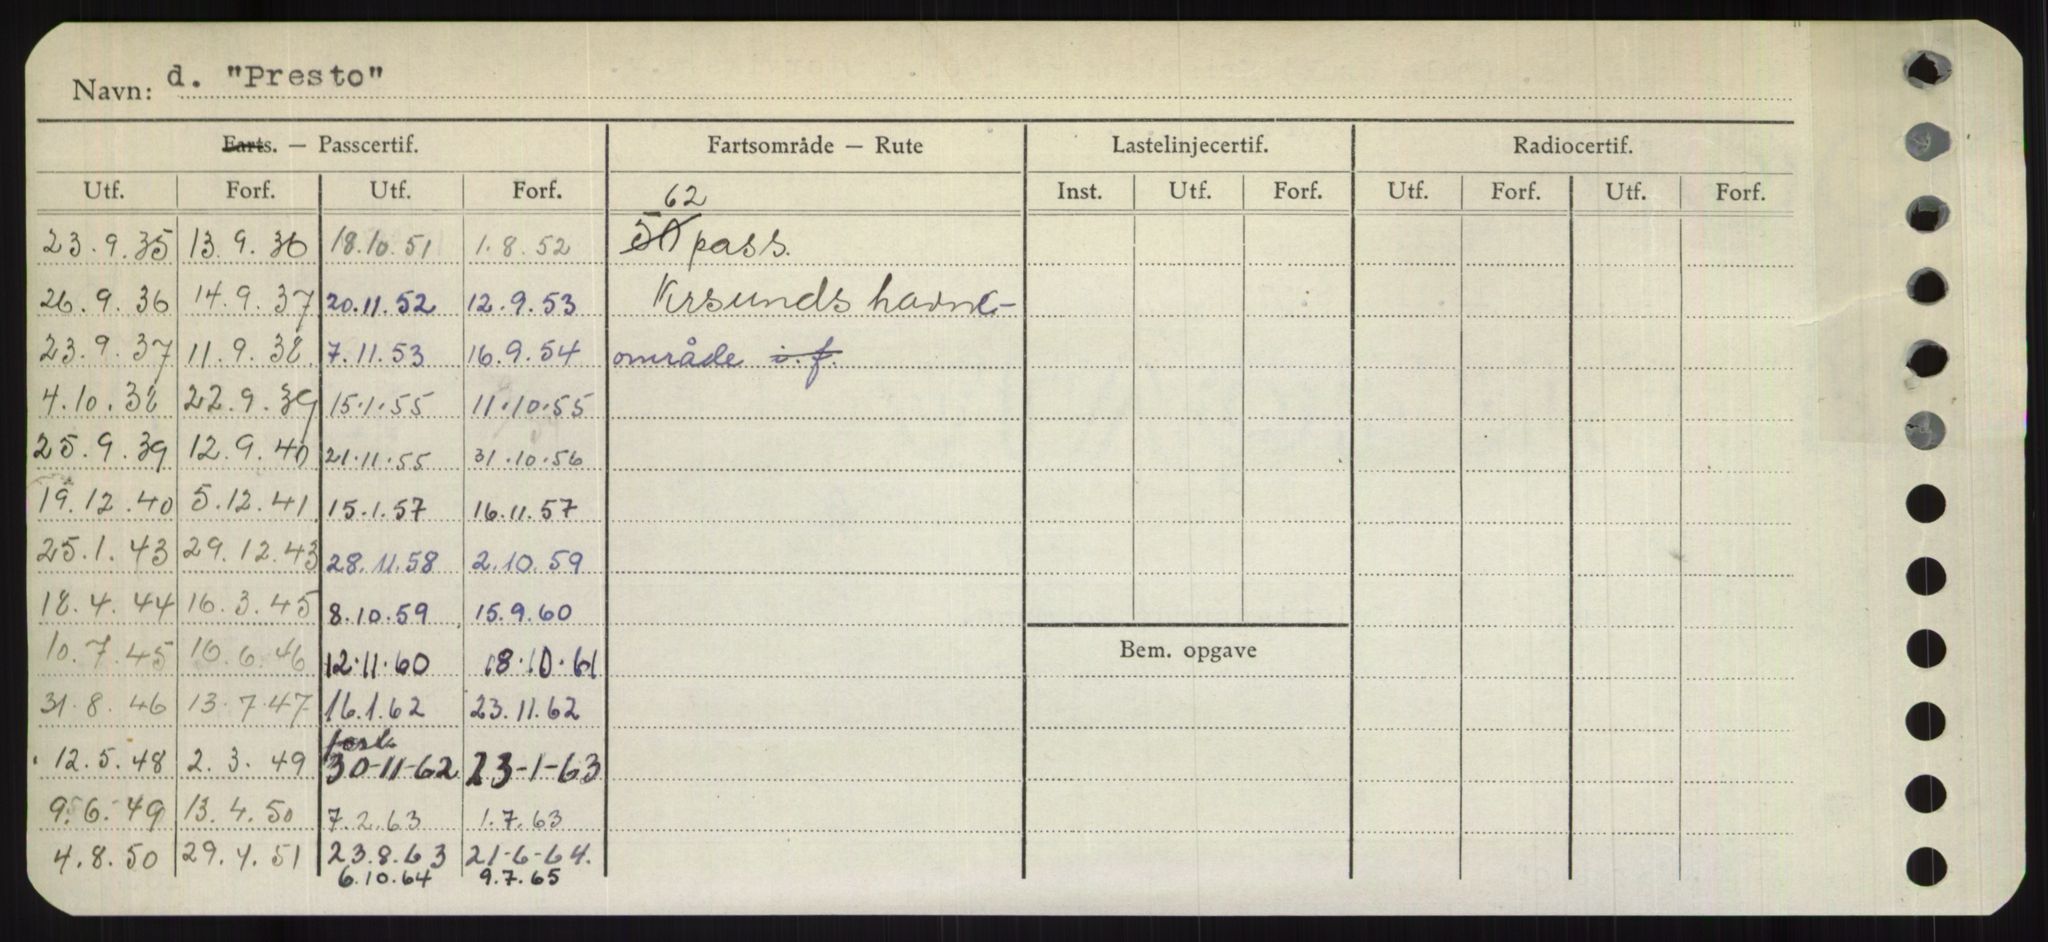 Navn: d. "Presto"
Farts. — Passcertif. Fartsområde — Rute Lastelinjecertif. Radiocertif.
Utf. Forf. Utf. Forf. Inst. Utf. Forf. Utf. Forf. Utf. Forf.
62
23.9.35 13.9.36 18.10.51 1.8.52 50 pass.
26.9.36 14.9.37 20.11.52 12.9.53 Krsunds havne-
23.9.37 11.9.38 7.11.53 16.9.54 område i.f.
4.10.38 22.9.39 15.1.55 11.10.55
25.9.39 12.9.40 21.11.55 31.10.56
19.12.40 5.12.41 15.1.57 16.11.57
25.1.43 29.12.43 28.11.58 2.10.59
18.4.44 16.3.45 8.10.59 15.9.60
10.7.45 10.6.46 12.11.60 18.10.61 Bem. opgave
31.8.46 13.7.47 16.1.62 23.11.62
forl.
12.5.48 2.3.49 30-11-62 23-1-63
9.6.49 13.4.50 7.2.63 1.7.63
4.8.50 29.4.51 23.8.63 21-6-64.
6.10.64 9.7.65